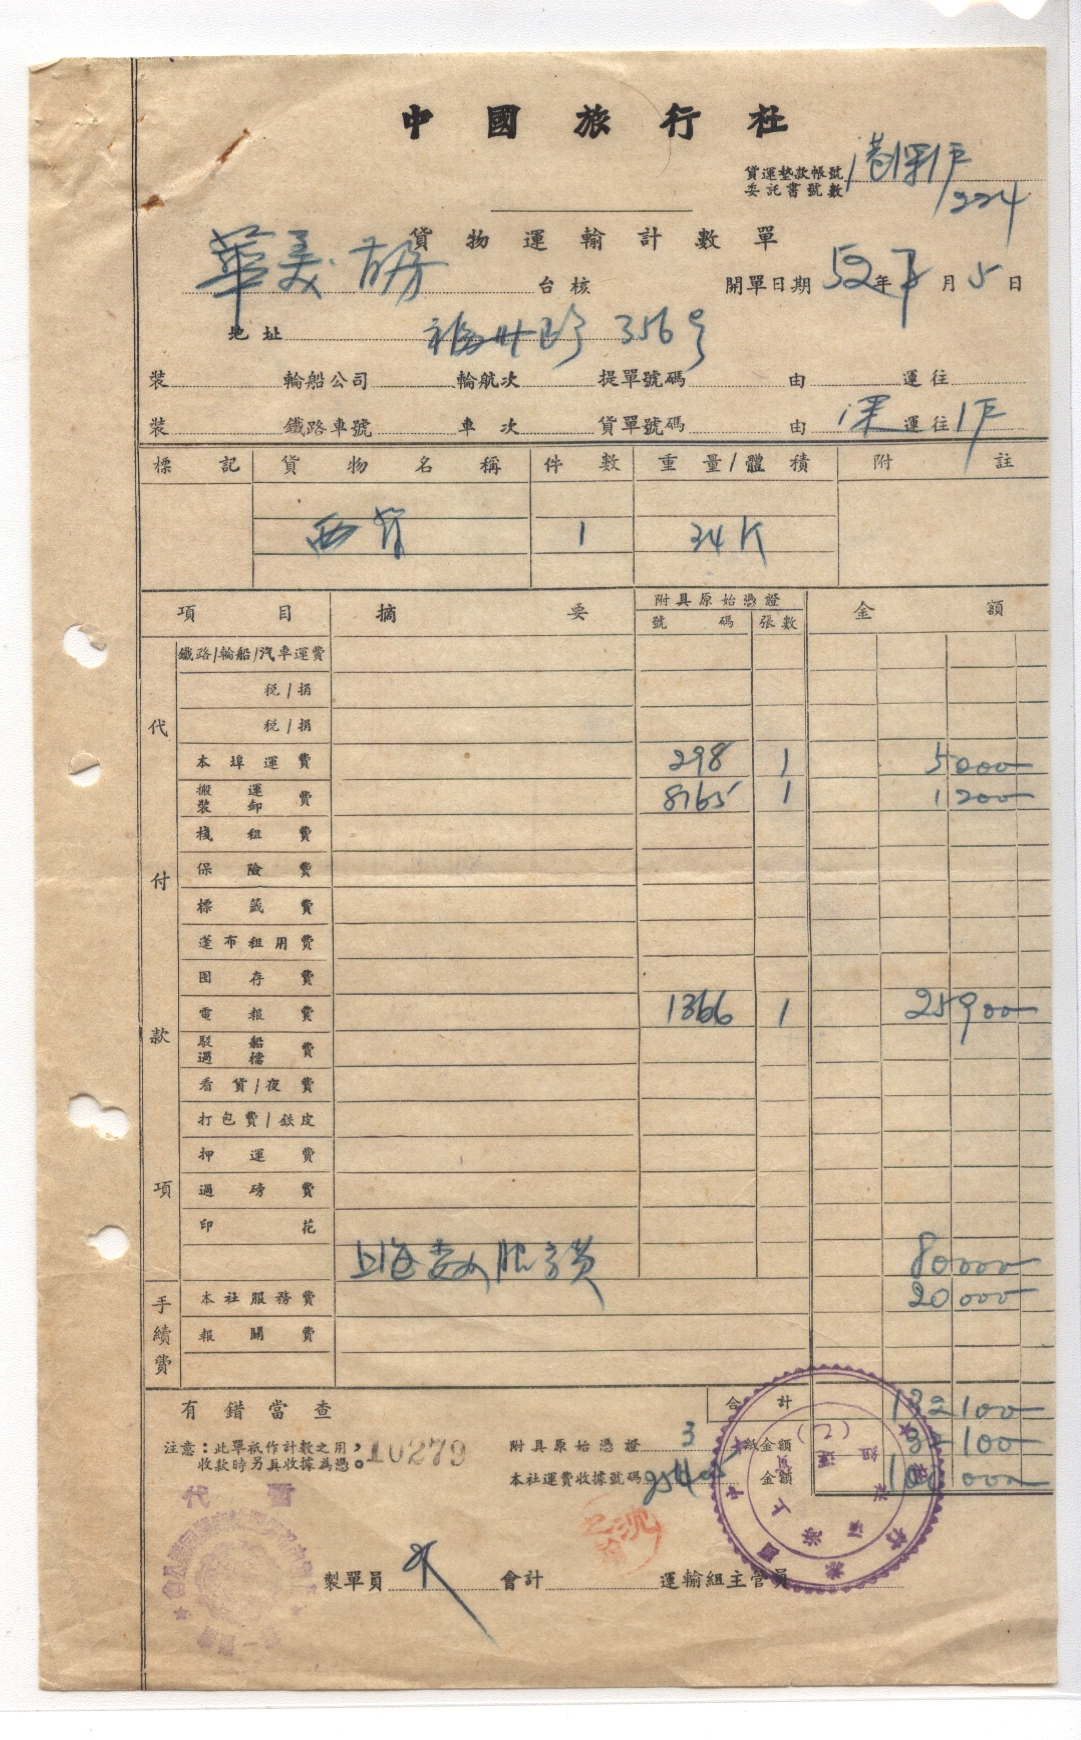 中國旅行社
貨運墊款帳號
委託書號數
224
貨物運輸計數單
華美藥房 台核 開單日期 52年 月5日
地址 福州路 356号
裝 輪船公司 輪航次 提單號碼 由 運往
裝 鐵路車號 車次 貨單號碼 由 深 運往 沪
標記 貨物名稱 件數 重量/體積 附註
西药 1 34K
項目 摘要 附具原始憑證 金額
號碼 張數
代付款項
鐵路/輪船/汽車運費
稅/捐
稅/捐
本埠運費 298 1 5000
搬運裝卸費 8765 1 1200
棧租費
保險費
標籤費
蓬布租用費
囤存費
電報費 1366 1 25900
駁船過檔費
看貨/夜費
打包費/鉄皮
押運費
過磅費
印花
80000
手續費
本社服務費 20000
報關費
有錯當查 合計 132100
注意：此單祇作計數之用，收款時另具收據為憑。 10279
附具原始憑證 3 金額 32100
本社運費收據號碼 金額 100000
製單員 會計 運輸組主管員